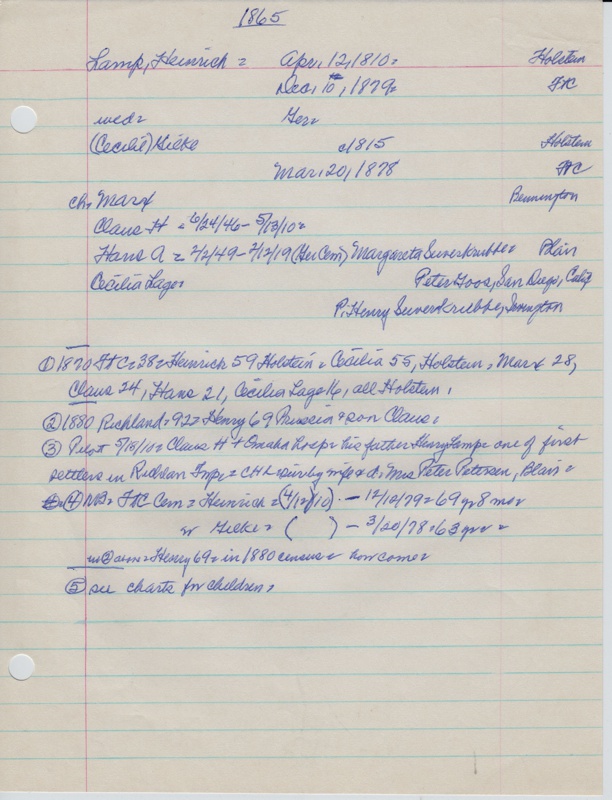 1865
Lamp, Heinrich = Apr. 12, 1810 = Holstein
Dec. 10, 1879 = FtC
wed = Ger =
(Cecilie) Gieke c1815 Holstein
Mar. 20, 1878 FtC
ch. Marx Bennington
Claus H = 6/24/46 - 5/13/10 =
Hans A = 2/2/49 - 2/12/19 (Ger Cem) Margareta Suverkrubbe = Blair
Cecilia Lage = Peter Goos, San Diego, Calif
P. Henry Suverkrubbe, Bennington
① 1870 FtC = 38 = Heinrich 59 Holstein = Cecilia 55, Holstein, Marx 28,
Claus 24, Hans 21, Cecilia Lage 16, all Holstein.
② 1880 Richland = 92 = Henry 69 Prussia + son Claus.
③ 5/15/10 = Claus H + Omaha hosp = his father Henry Lamp = one of first
settlers in Richlan Twp = CHL = surv by wife & d. Mrs Peter Petersen, Blair =
④ NB = FtC Cem = Heinrich = (4/12/10) - 12/10/79 = 69 yr 8 mo =
w Gieke = ( ) - 3/20/78 = 63 yr =
Henry 69 = in 1880 census = how come =
⑤ see charts for children,